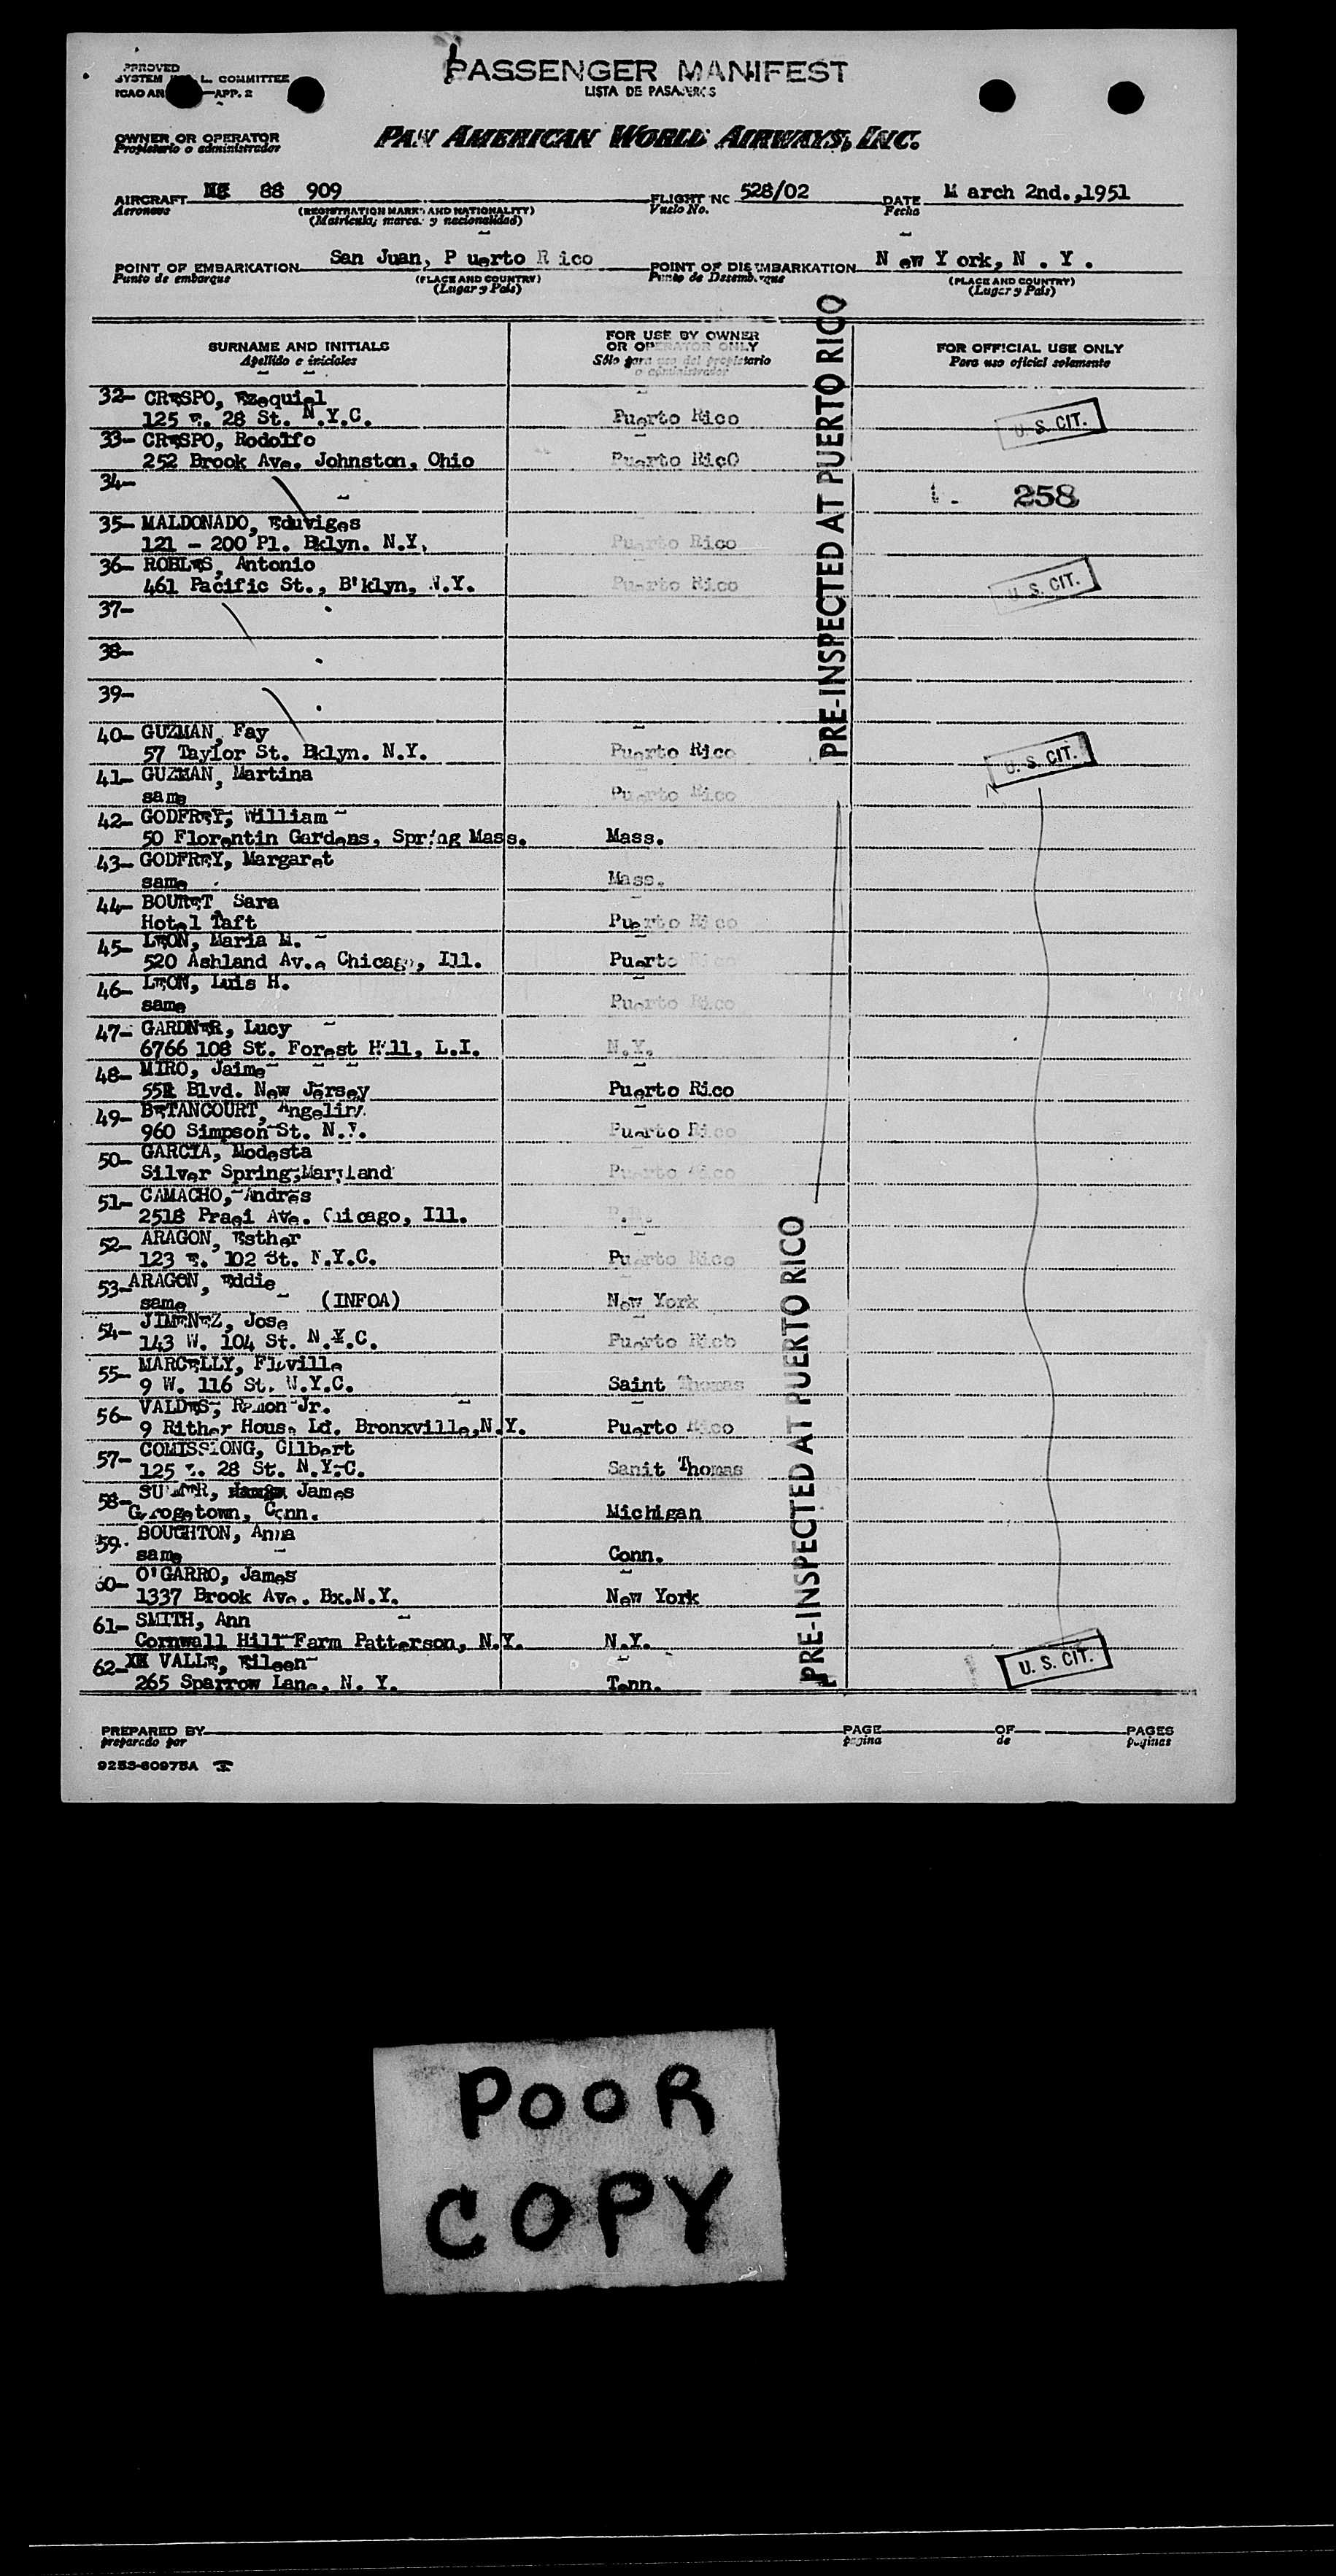 PASSENGER MANIFEST
LISTA DE PASAJEROS
APPROVED
SYSTEM L. COMMITTEE
ICAO AN APP. 2
OWNER OR OPERATOR
Propietario o administrador
PAN AMERICAN WORLD AIRWAYS, INC.
AIRCRAFT 88 909 FLIGHT NO 528/02 DATE M arch 2nd.,1951
Aeronave (REGISTRATION MARK AND NATIONALITY) Vuelo No. Fecha
(Matricula, marca y nacionalidad)
POINT OF EMBARKATION San Juan, P uerto R ico POINT OF DISEMBARKATION N ew Y ork, N . Y .
Punto de embarque (PLACE AND COUNTRY) Punto de Desembarque (PLACE AND COUNTRY)
(Lugar y Pais) (Lugar y Pais)
SURNAME AND INITIALS FOR USE BY OWNER OR OPERATOR ONLY FOR OFFICIAL USE ONLY
Apellido e iniciales Sólo para uso del propietario o administrador Para uso oficial solamente
32- CRESPO, Ezequiel
125 E. 28 St. N.Y.C. Puerto Rico U. S. CIT.
33- CRESPO, Rodolfo
252 Brook Ave. Johnston, Ohio Puerto RicO
34- 258
35- MALDONADO, Eduviges
121 - 200 Pl. Bklyn. N.Y. Puerto Rico
36- ROBLES, Antonio
461 Pacific St., B'klyn, N.Y. Puerto Rico U. S. CIT.
37-
38-
39-
PRE-INSPECTED AT PUERTO RICO
40- GUZMAN, Fay
57 Taylor St. Bklyn. N.Y. Puerto Rico U. S. CIT.
41- GUZMAN, Martina
same Puerto Rico
42- GODFREY, William
50 Florentin Gardens, Spring Mass. Mass.
43- GODFREY, Margaret
same Mass.
44- BOURET, Sara
Hotel Taft Puerto Rico
45- LEON, Maria M.
520 Ashland Ave. Chicago, Ill. Puerto
46- LEON, Luis H.
same Puerto Rico
47- GARDNER, Lucy
6766 108 St. Forest Hill, L.I. N.Y.
48- MIRO, Jaime
Blvd. New Jersey Puerto Rico
49- BETANCOURT, Angelina
960 Simpson St. N.Y. Puerto Rico
50- GARCIA, Modesta
Silver Spring, Maryland Puerto Rico
51- CAMACHO, Andres
2518 Ave. Chicago, Ill. P.R.
52- ARAGON, Esther
123 E. 102 St. N.Y.C. Puerto Rico
53- ARAGON, Eddie
same (INFOA) New York
54- JIMENEZ, Jose
143 W. 104 St. N.Y.C. Puerto Rico
55- MARCELLY,
9 W. 116 St. N.Y.C. Saint Thomas
56- VALDES, Ramon Jr.
9 Rither House Ld. Bronxville, N.Y. Puerto Rico
57- COMISSIONG, Gilbert
125 E. 28 St. N.Y.C. Sanit Thomas
58- James
Georgetown, Conn. Michigan
59- BOUGHTON, Anna
same Conn.
60- O'GARRO, James
1337 Brook Ave. Bx.N.Y. New York
61- SMITH, Ann
Cornwall Hill Farm Patterson, N.Y. N.Y.
62- VALLE, Eileen
265 Sparrow Lane, N. Y. Tenn. U. S. CIT.
PRE-INSPECTED AT PUERTO RICO
PREPARED BY PAGE OF PAGES
preparado por pagina de paginas
9253-60975A
POOR
COPY